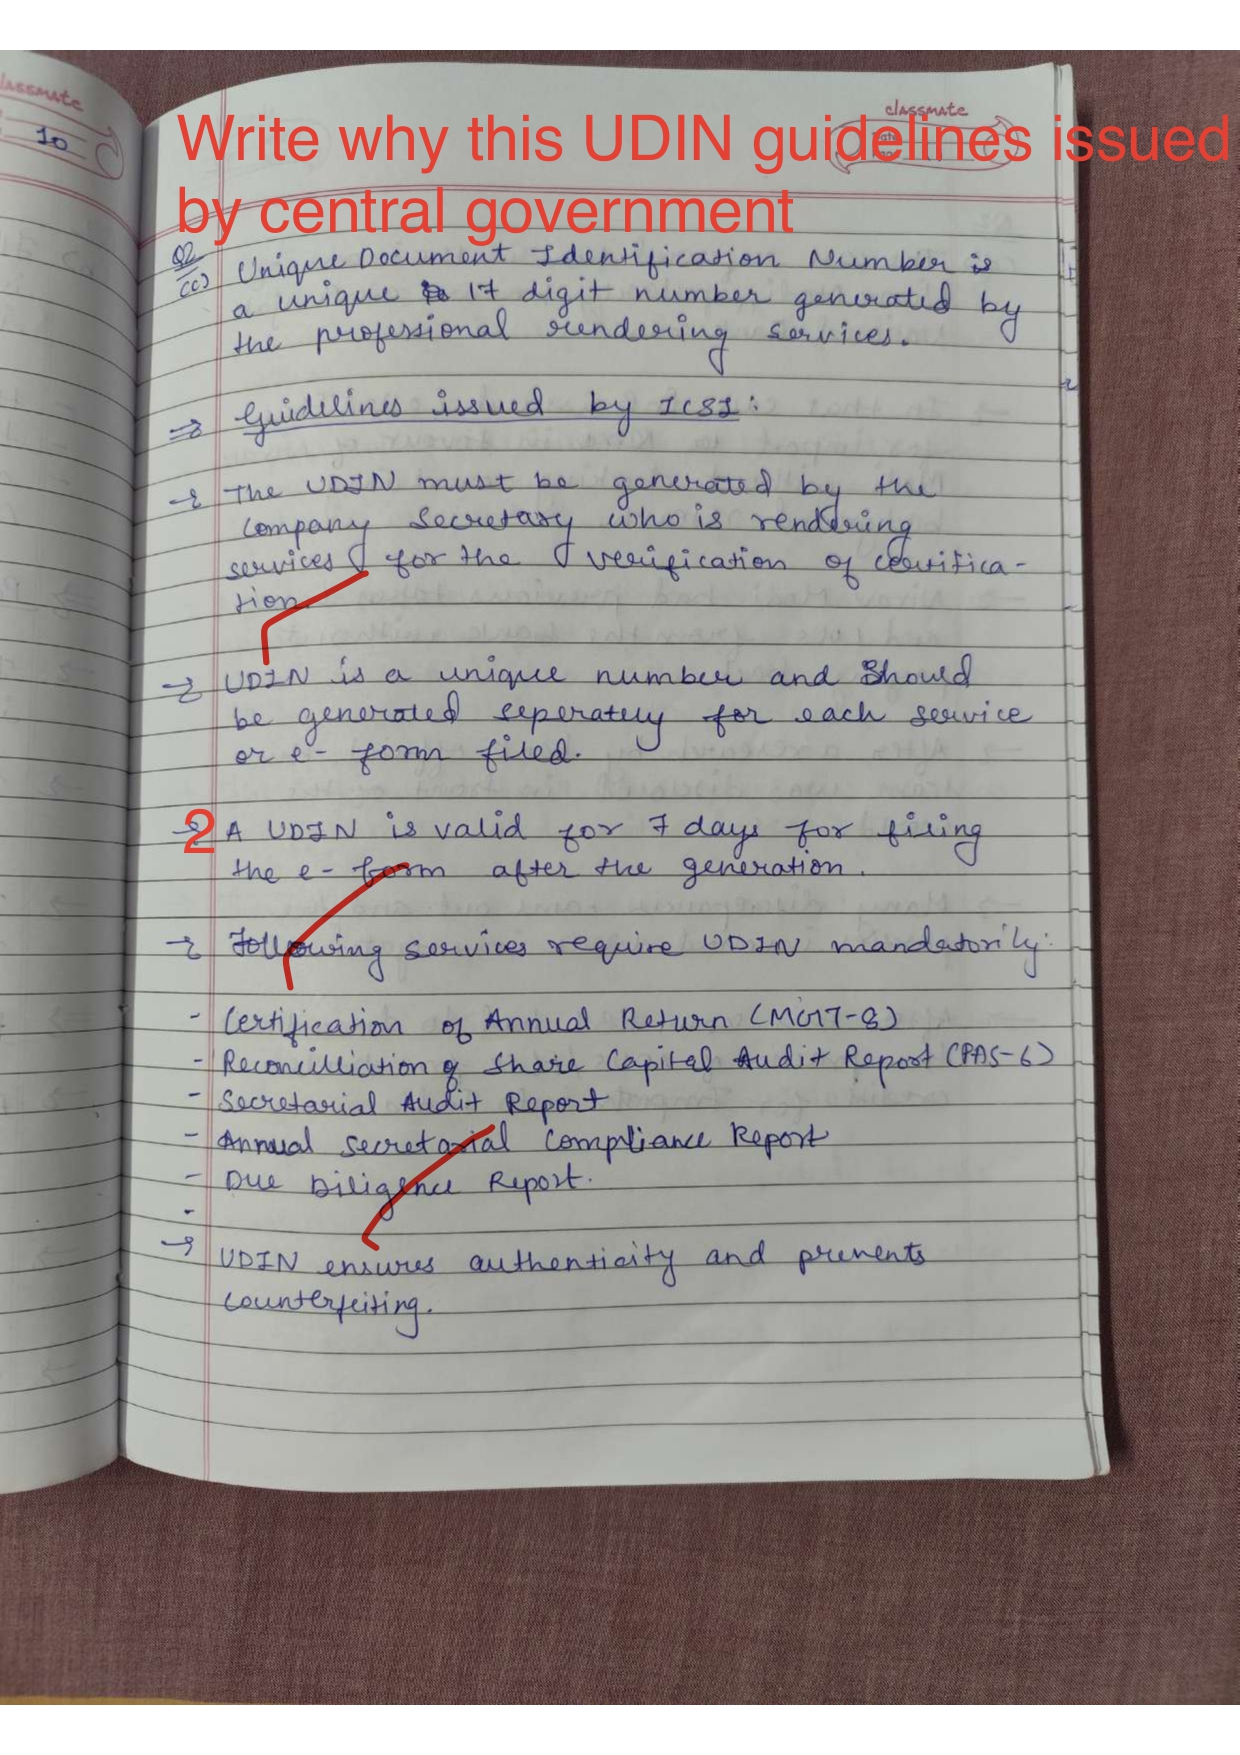 classmate
10
classmate
Write why this UDIN guidelines issued
by central government
Q2
(c) Unique Document Identification Number is
a unique 17 digit number generated by
the professional rendering services.
⇒ Guidelines issued by ICSI:
→ The UDIN must be generated by the
Company Secretary who is rendering
services for the verification of certifica-
tion.
→ UDIN is a unique number and Should
be generated seperately for each service
or e-form filed.
2
→ A UDIN is valid for 7 days for filing
the e-form after the generation.
→ Following services require UDIN mandatorily:
- Certification of Annual Return (MGT-8)
- Reconcilliation of Share Capital Audit Report (PAS-6)
- Secretarial Audit Report
- Annual Secretarial Compliance Report
- Due Diligence Report.
-
→ UDIN ensures authenticity and prevents
counterfeiting.